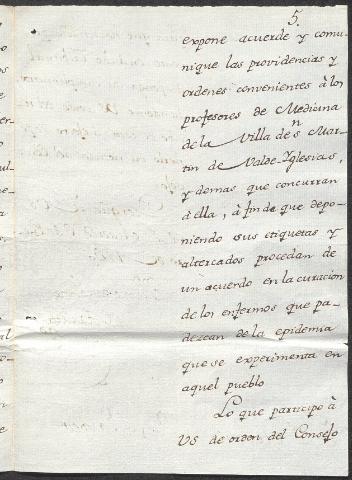 5.
expone acuerde y comu-
nique las providencias y
ordenes convenientes à los
profesores de Medicina
de la Villa de Sn Mar-
tin de Valde-Yglesias,
y demas que concurran
à ella, à fin de que depo-
niendo sus etiquetas y
altercados procedan de
un acuerdo en la curacion
de los enfermos que pa-
dezcan de la epidemia
que se experimenta en
aquel pueblo
Lo que participo à
VS de orden del Consejo